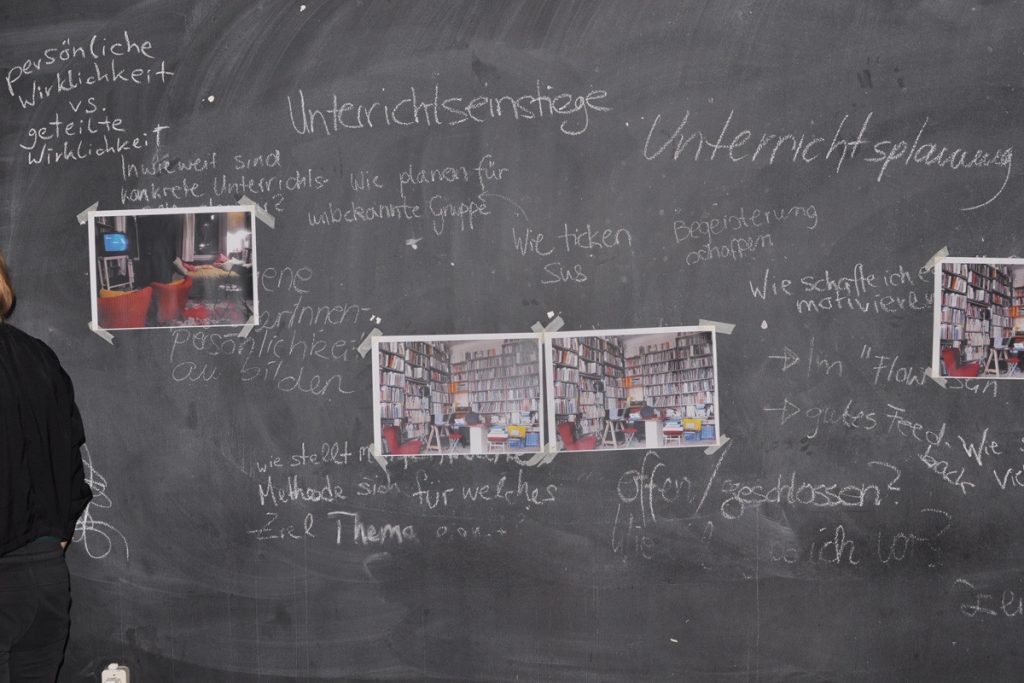 persönliche
Wirklichkeit
vs.
geteilte
Wirklichkeit
Unterrichtseinstiege
Unterrichtsplanung
Inwieweit sind
konkrete Unterrichts-
Wie planen für
unbekannte Gruppe
Wie ticken
SuS
Begeisterung
schaffen
Innen-
persönlichkeit
ausbilden
Wie schaffe ich
motivieren
→ Im "Flow" sein
→ gutes Feed
back
Wie
wie stellt
Methode sich für welches
Ziel Thema
offen/geschlossen?
Wie
ich vor?